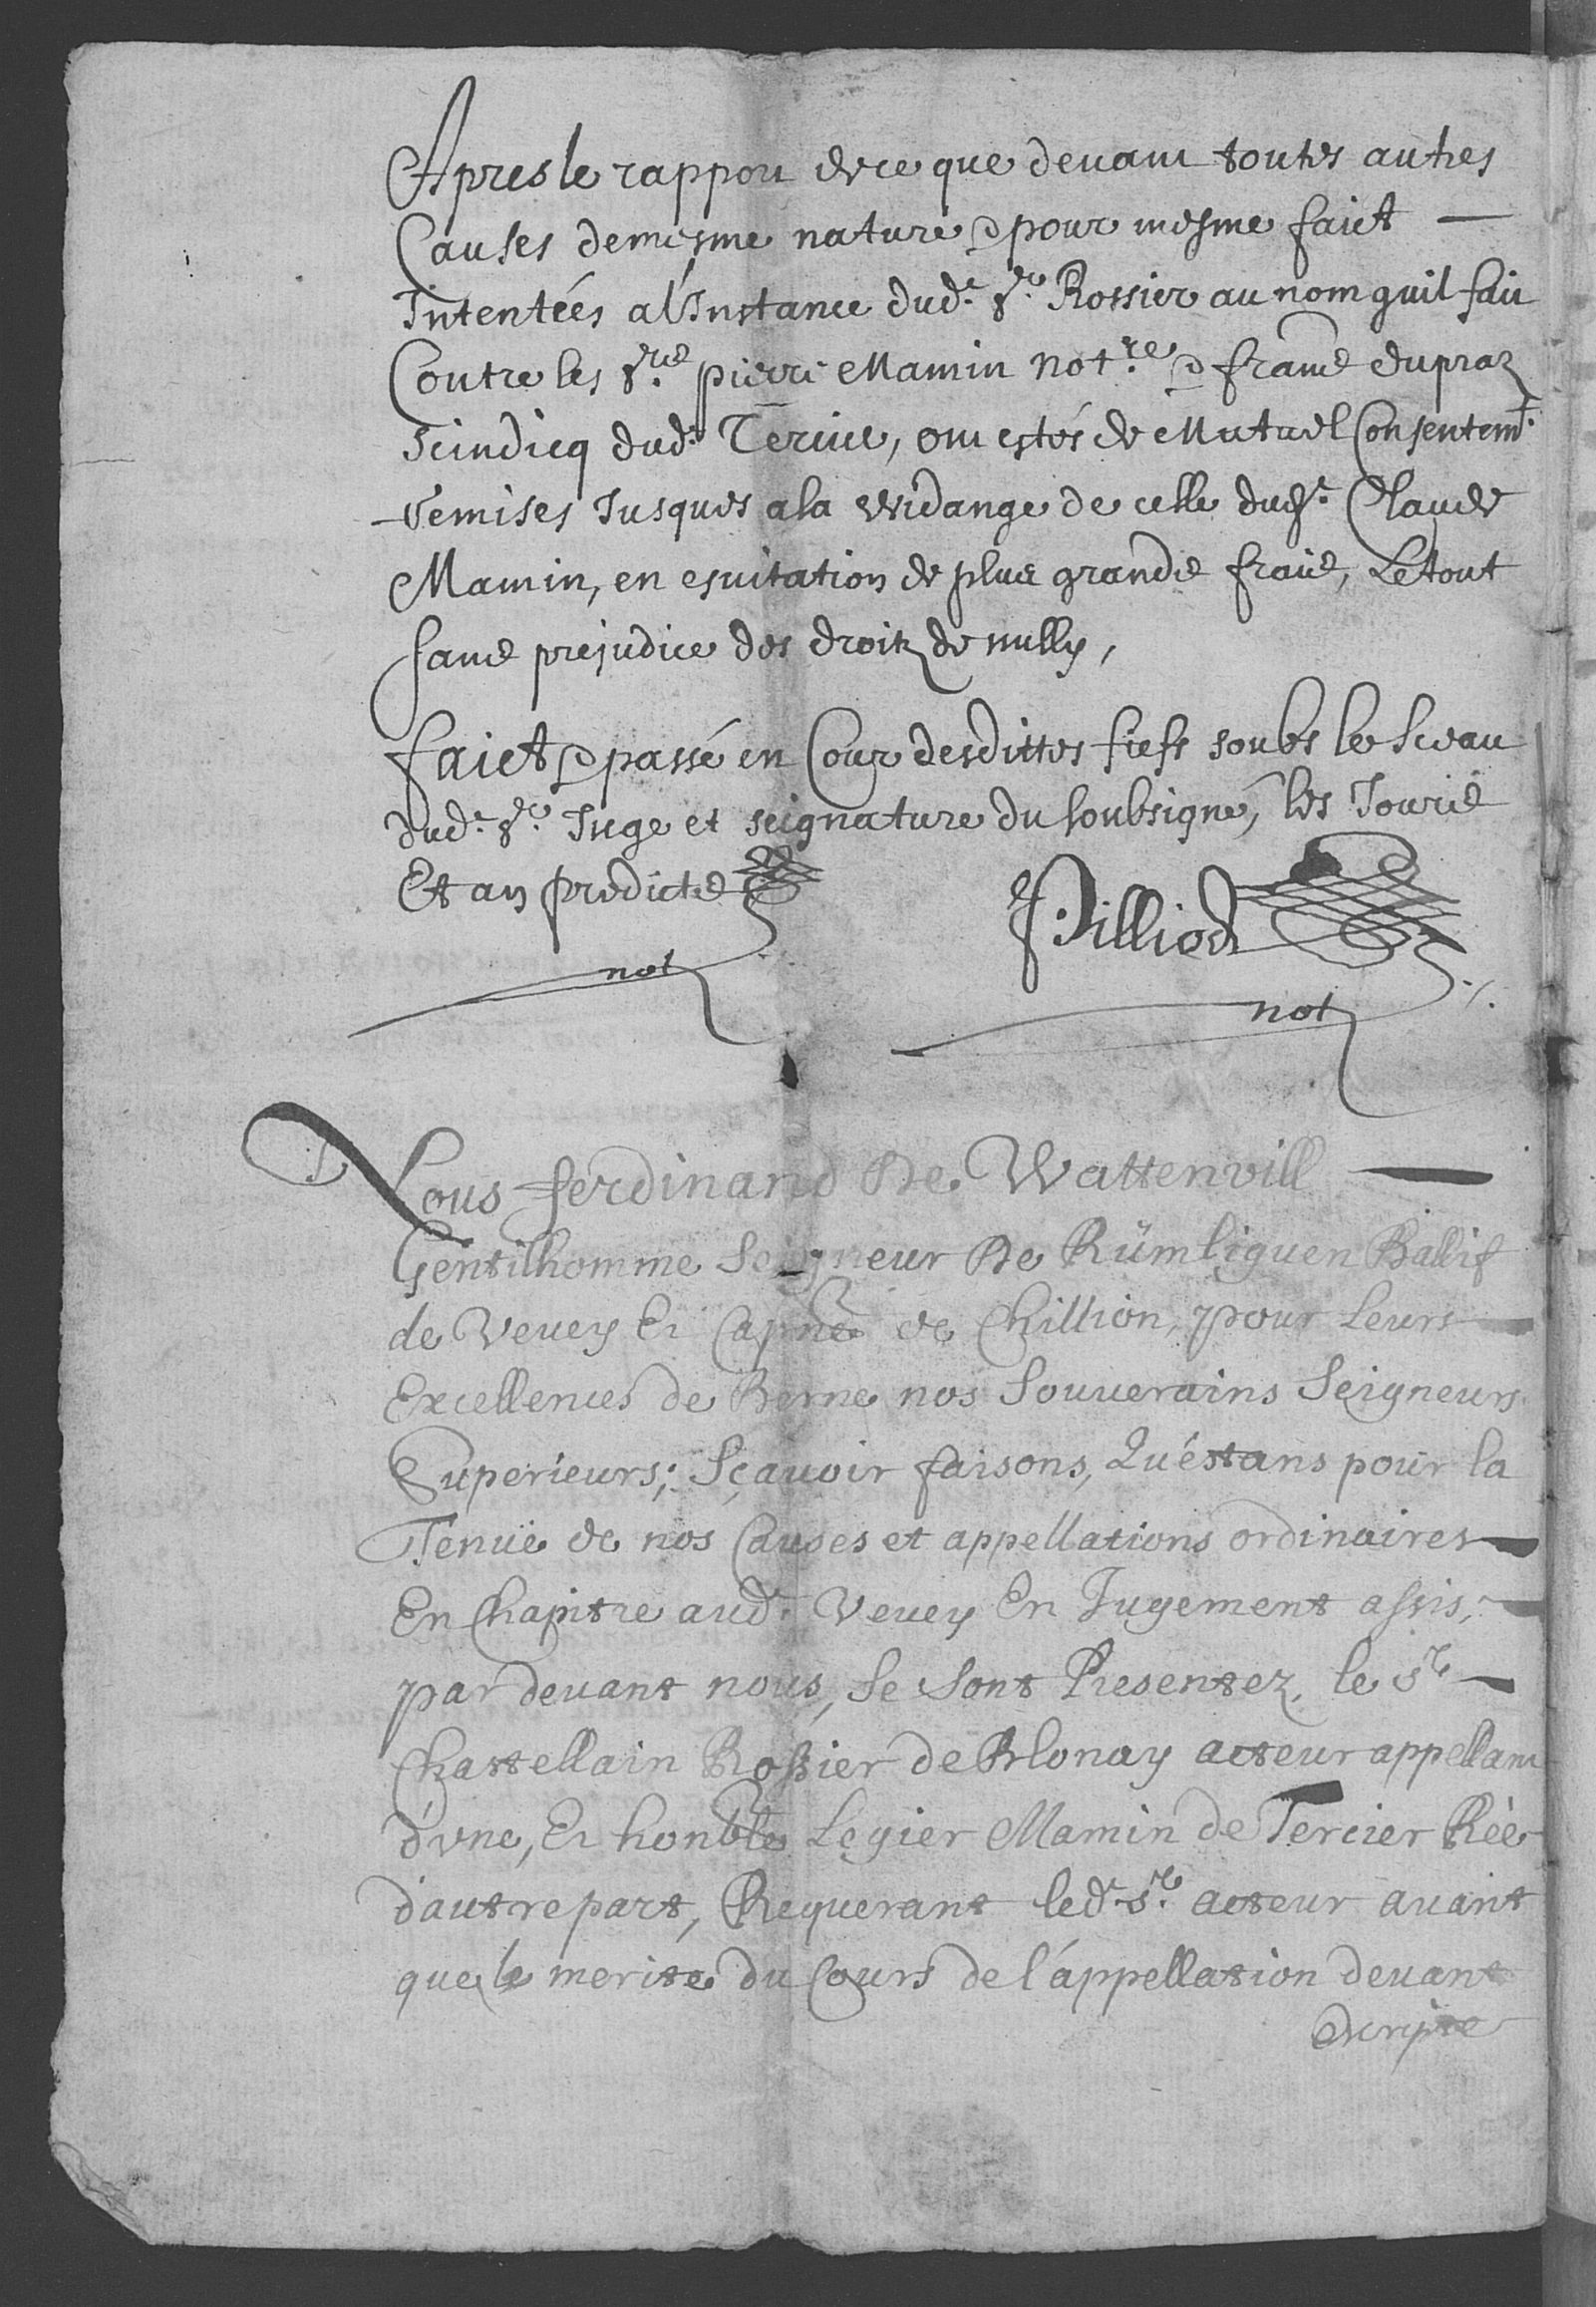 Apres le rapport de ce que devant toutes autres
Causes de mesme nature & pour mesme faict —
Intentées al'Instance dud.e Sr. Rossier au nom quil fait
Contre les Srs. pierre Mamin Not.re & frans dupraz
Scindicq dud. Tercier, ont estés de Mutuel Consentemt.
remises Jusques a la vuidange de celle dudt. Claude
Mamin, en esvitation de plus grands frais, Le tout
sans prejudice des droitz de nully,
faict & passé en Cour desdittes fiefs soubs le Sceau
dud. Sr. Juge et seignature du soubsigné, les Jours
Et an predicts
not
Pilliod
not
Nous ferdinand De Wattenvill —
Gentilhomme Seigneur De Rümliguen Ballif
de Vevey Et Capne de Chillion, pour Leurs
Excellences de Berne nos Souverains Seigneurs
Superieurs; Sçavoir faisons, Qu'éstans pour la
Tenuë de nos Causes et appellations ordinaires
En Chapitre aud. Vevey En Jugement assis,
par devant nous, Se Sont Presentez, le Sr
Chastellain Rossier de Blonay acteur appellant
d'vne, Et honble Legier Mamin de Tercier Rée
d'autre part, Requerant led. Sr. acteur avant
que le merite du Cours de l'áppellation devant
descripte